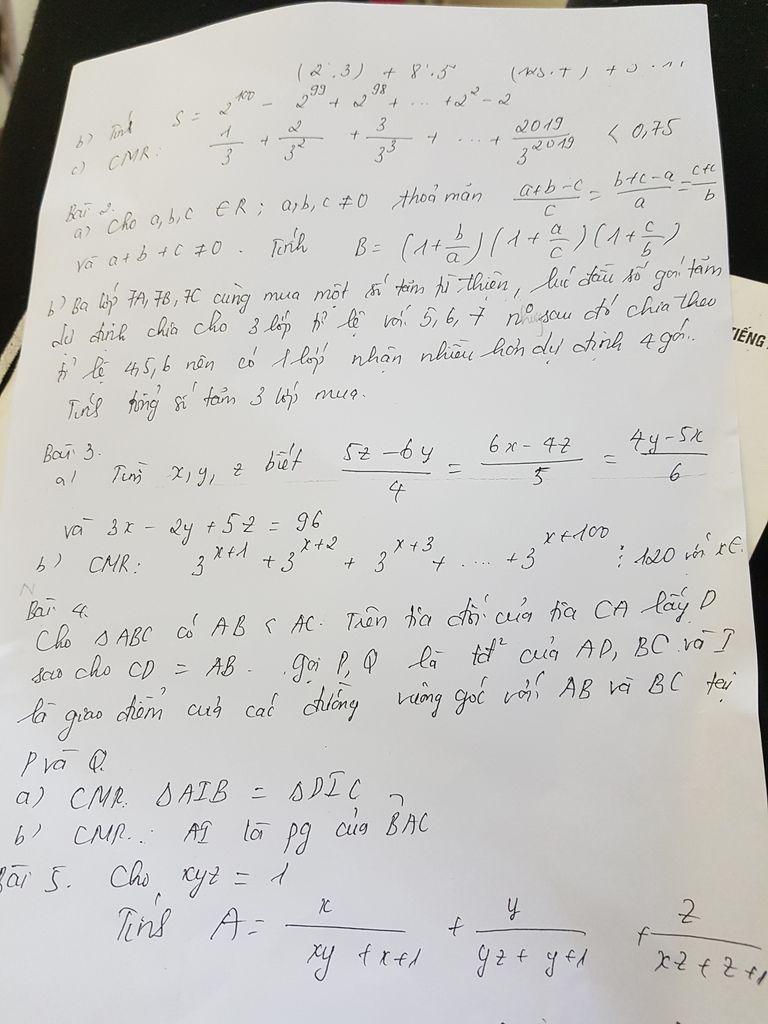 (2.3) + 8.5
b) Tính S = 2^100 - 2^99 + 2^98 + ... + 2^2 - 2
c) CMR: 1/3 + 2/3^2 + 3/3^3 + ... + 2019/3^2019 < 0,75
Bài 2.
a) Cho a,b,c ∈ R; a,b,c ≠ 0 thoả mãn (a+b-c)/c = (b+c-a)/a = (c+c)/b
và a + b + c ≠ 0. Tính B = (1 + b/a)(1 + a/c)(1 + c/b)
b) Ba lớp 7A, 7B, 7C cùng mua một số tăm từ thiện, lúc đầu số gói tăm
dự định chia cho 3 lớp tỉ lệ với 5, 6, 7 nhưng sau đó chia theo
tỉ lệ 4,5,6 nên có 1 lớp nhận nhiều hơn dự định 4 gói.
Tính tổng số tăm 3 lớp mua.
Bài 3.
a) Tìm x, y, z biết (5z - 6y)/4 = (6x - 4z)/5 = (4y - 5x)/6
và 3x - 2y + 5z = 96
b) CMR: 3^x+1 + 3^x+2 + 3^x+3 + ... + 3^x+100 ⋮ 120 với x ∈
Bài 4.
Cho ΔABC có AB < AC. Trên tia đối của tia CA lấy D
sao cho CD = AB. Gọi P, Q là tđ² của AD, BC và I
là giao điểm của các đường vuông góc với AB và BC tại
P và Q.
a) CMR. ΔAIB = ΔDIC
b) CMR.: AI là pg của BAC
Bài 5. Cho xyz = 1
Tính A = x/(xy + x+1) + y/(yz + y+1) + z/(xz + z + 1
TIẾNG